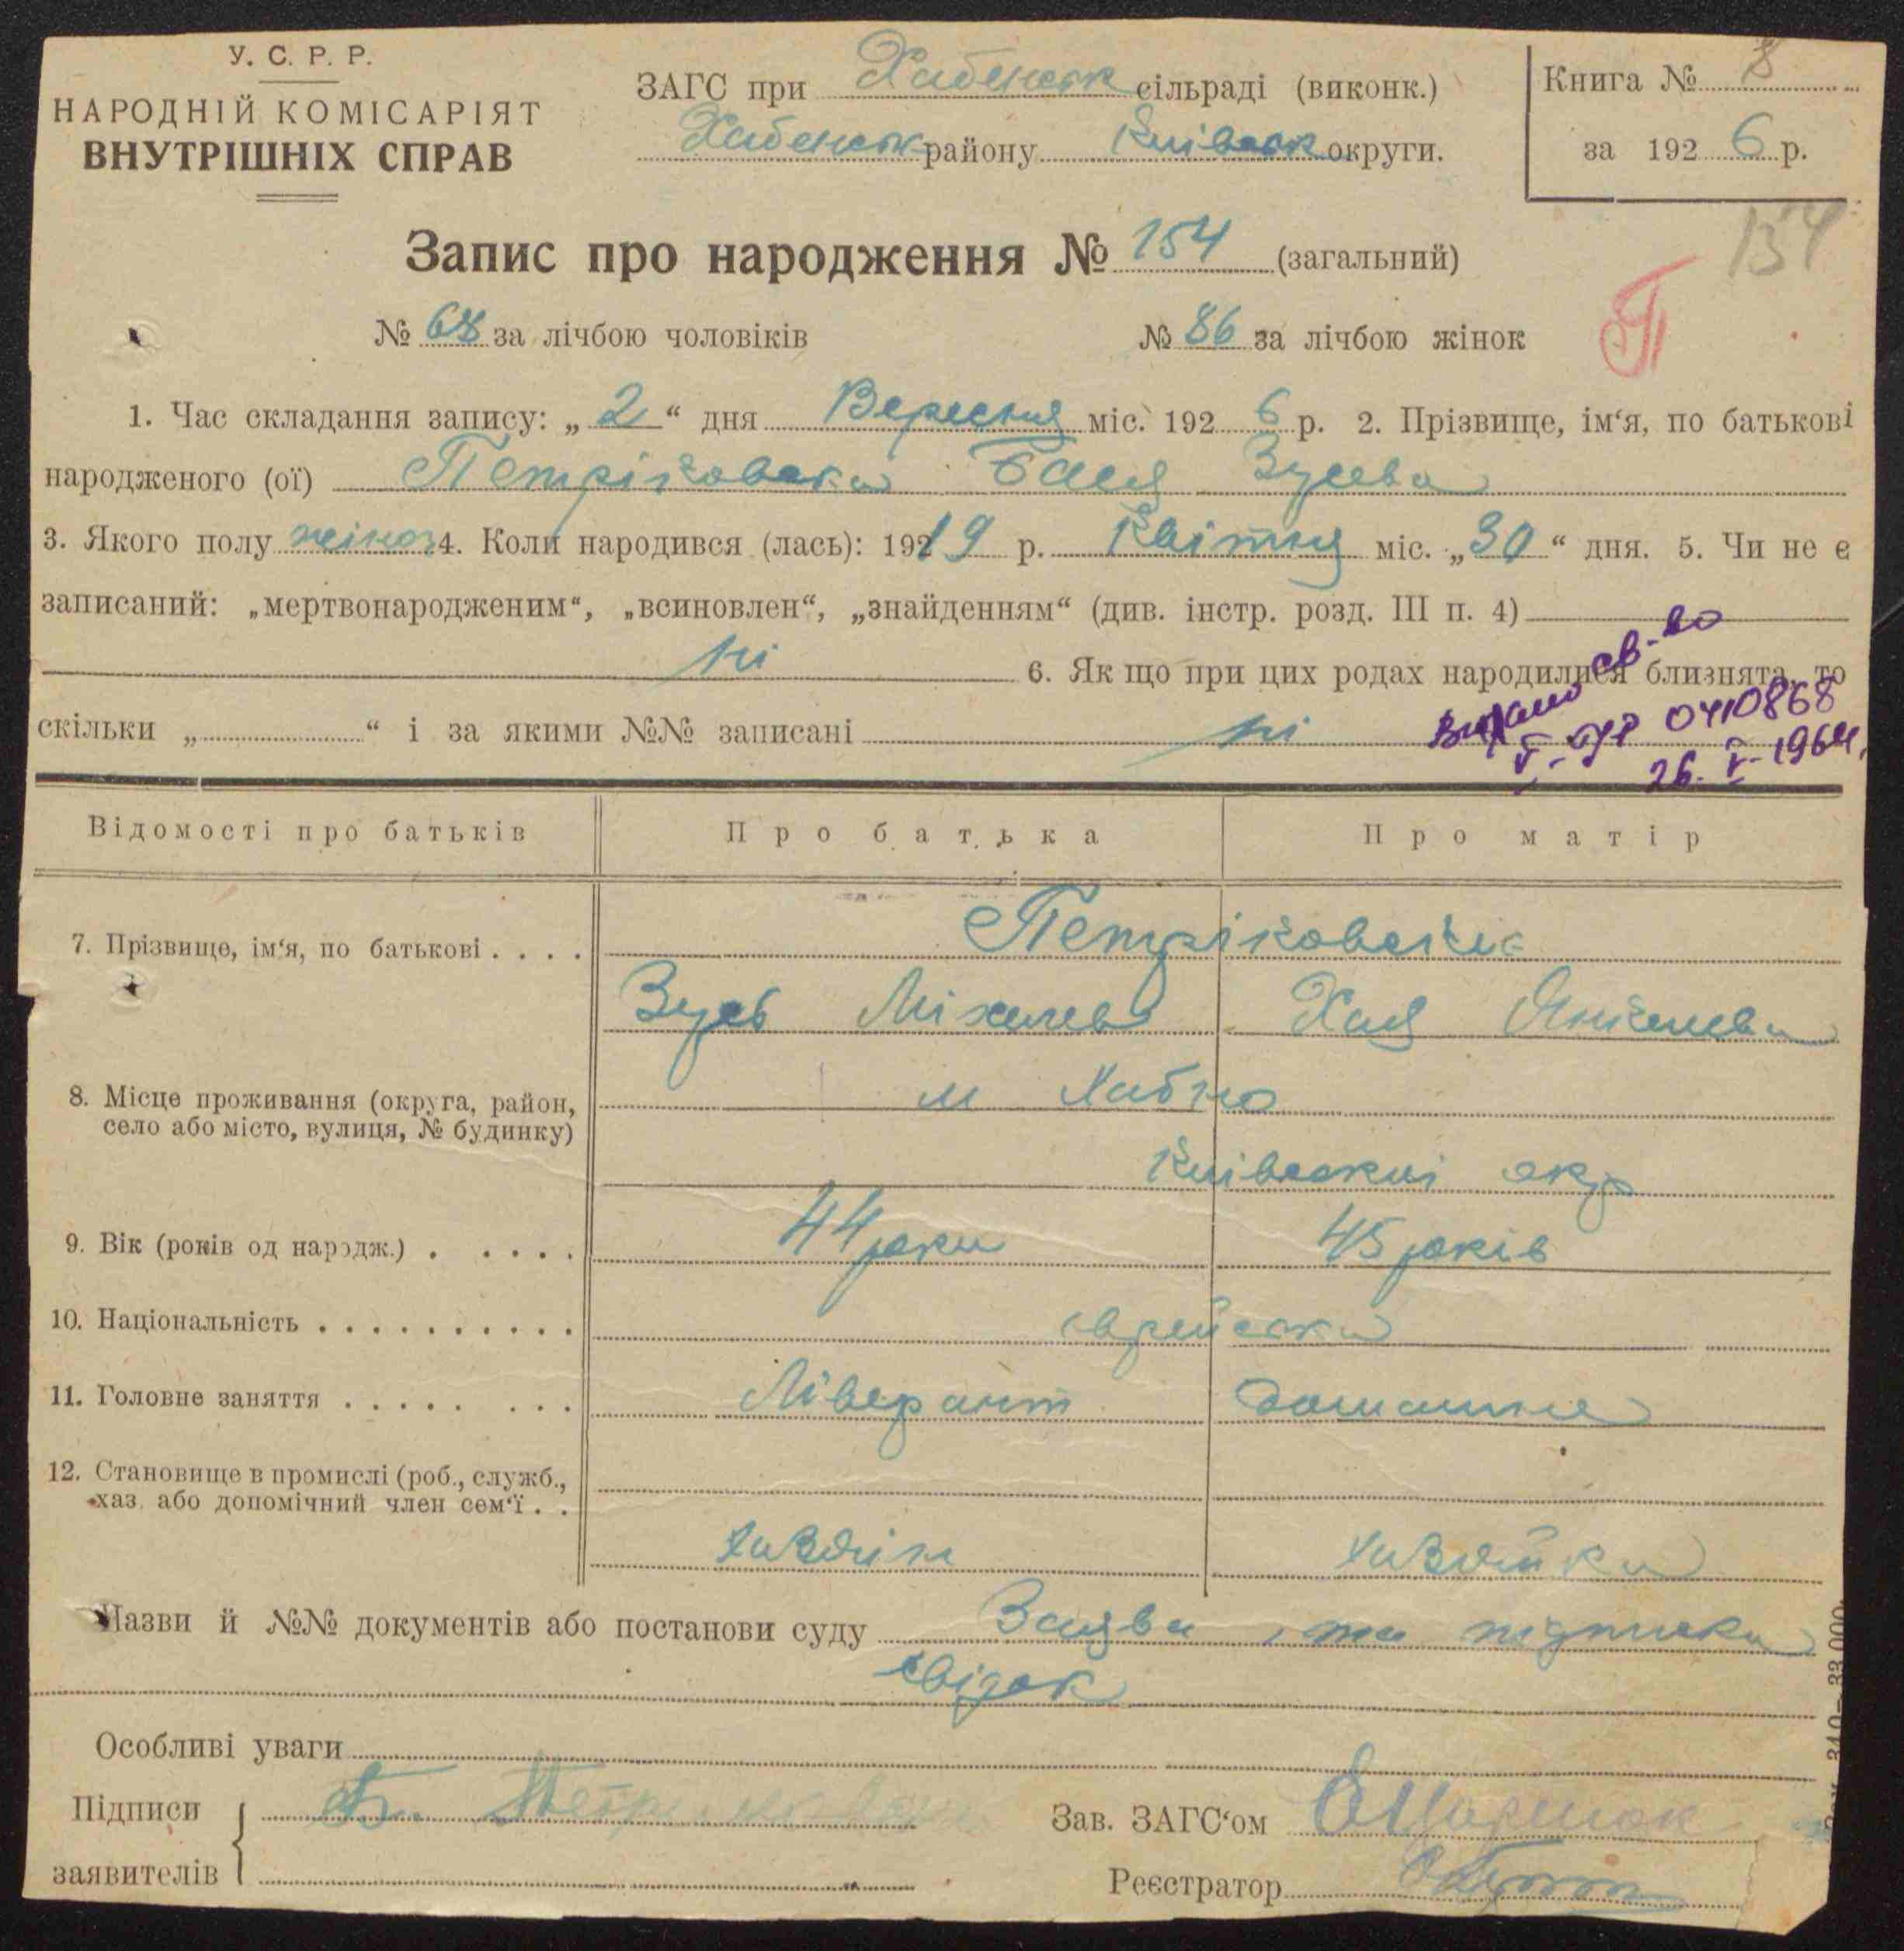 У. С. Р. Р.
НАРОДНІЙ КОМІСАРІЯТ
ВНУТРІШНІХ СПРАВ
ЗАГС при Хабенськ сільраді (виконк.)
Хабенськ району Київськ округи.
Книга № 8
за 192 6 р.
154
Запис про народження № 154 (загальний)
№ 68 за лічбою чоловіків № 86 за лічбою жінок
П
1. Час складання запису: „ 2 “ дня Вересня міс. 192 6 р. 2. Прізвище, ім‘я, по батькові
народженого (ої) Петріковська Бася Зусева
3. Якого полу жіноч 4. Коли народився (лась): 1919 р. Квітня міс. „ 30 “ дня. 5. Чи не є
записаний: „мертвонародженим“, „всиновлен“, „знайденням“ (див. інстр. розд. III п. 4)
ні 6. Як що при цих родах народилися близнята, то
скільки „ “ і за якими №№ записані ні
Видано св-во
0410868
26. V. 1964.
Відомості про батьків Про батька Про матір
7. Прізвище, ім‘я, по батькові . . . . Петріковські
Зусь Міхелев Хая Янкелева
8. Місце проживання (округа, район,
село або місто, вулиця, № будинку)
м Хабно
Київської окр
9. Вік (років од народж.) . . . . . 44 роки 45 років
10. Національність . . . . . . . . . . Єврейська
11. Головне заняття . . . . . . . . Ліверант домашнє
12. Становище в промислі (роб., служб.,
хаз. або допомічний член сем‘ї . .
хазяїн хазяйка
Назви й №№ документів або постанови суду Заява та підписка
свідок
Особливі уваги
Підписи
заявителів
Зав. ЗАГС‘ом
Реєстратор